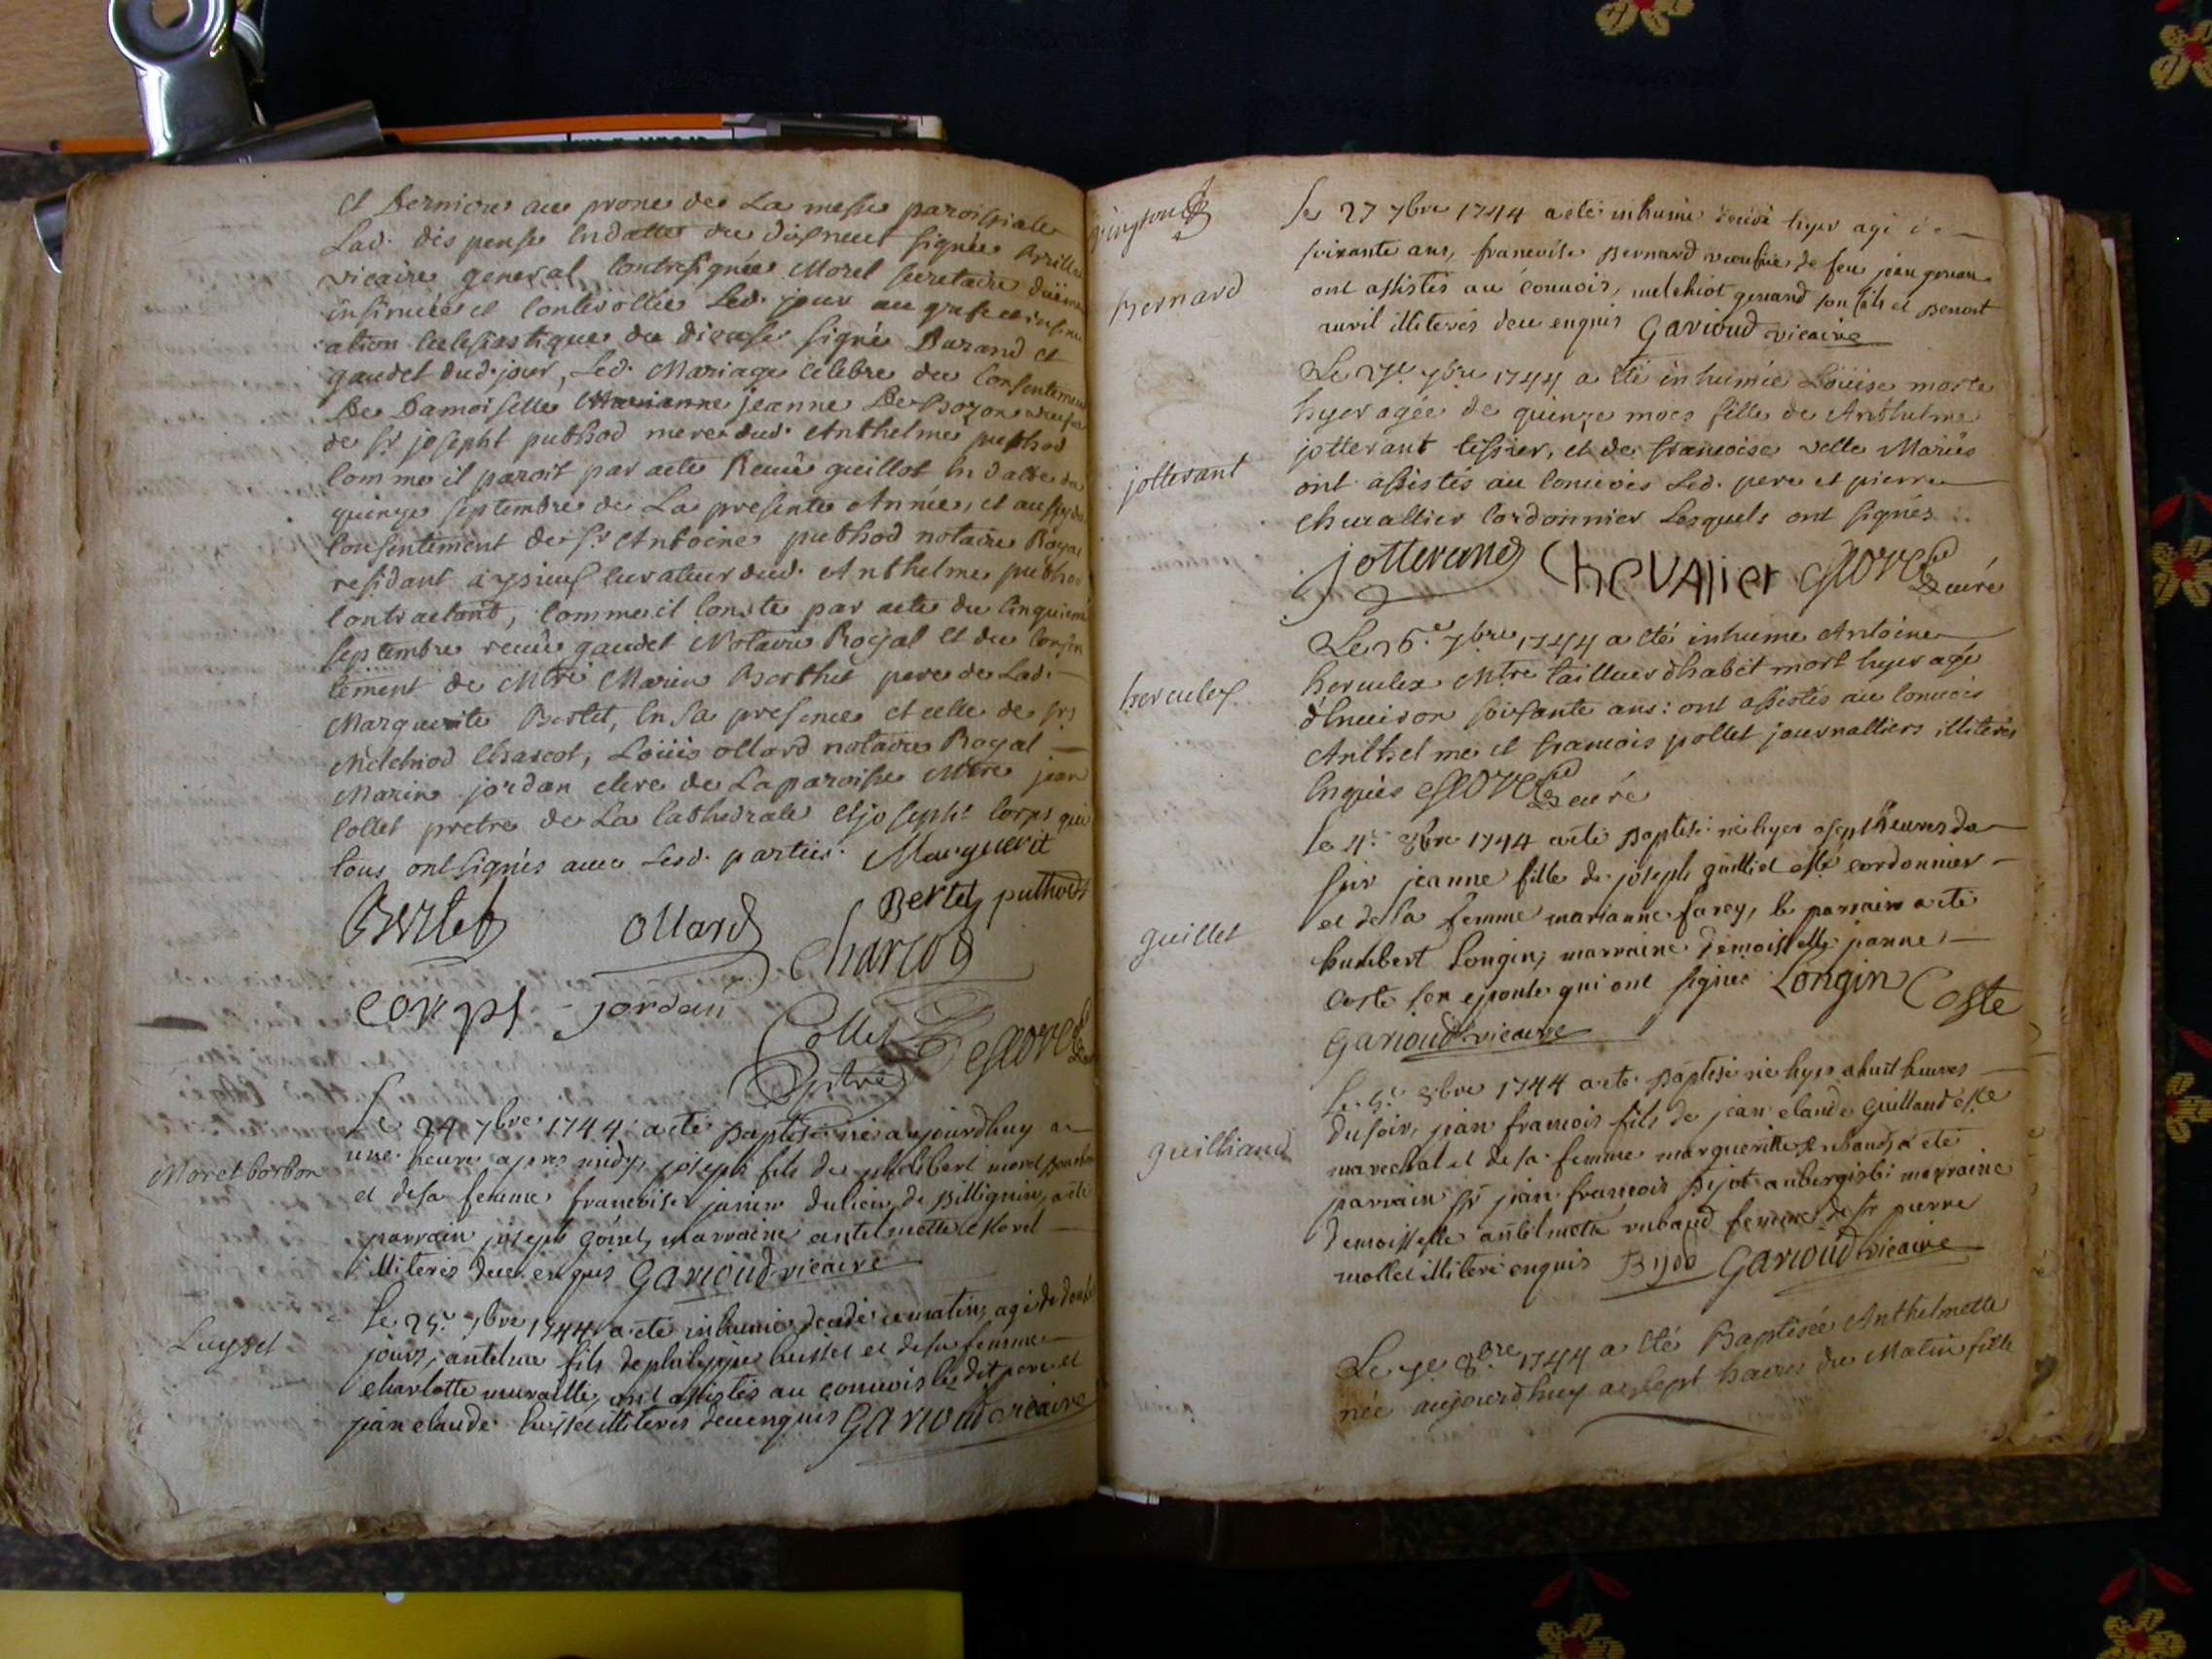 et Derniere au prone de La messe paroissiale
Lad. dispense en datte du dixneuf signée
vicaire general, Contresignée Morel secretaire
insinuée et Controllée Led. jour au greffe
ation Eclesiastiques du Diocese signé Durand et
gaudet dud. jour, Led. Mariage Celebré du Consentement
De Damoiselle jeanne De Bozon
de Sr. josepht puthod mere dud. Anthelme puthod
Comme il paroit par acte Receu guillot En datte du
quinze septembre de La presente Année, et aussy du
Consentement de Sr. Antoine puthod notaire Royal
residant a ysieux Curateur dud. Anthelme puthod
Contractant, Comme il Conste par acte du Cinquieme
septembre receu gaudet Notaire Royal et du Consen
tement de Mtre Marin Berthet pere de Lad.
Marguerite Bertet, En sa presence et celle de srs
Melchiod Charcot, Loüis ollard notaire Royal
Marin jordan clerc de La paroisse Mtre jean
Collet pretre de La Cathedrale et josepht Corps qui
tous ont signés avec Lesd. parties. Marguerit
Bertet puthod
Bertet ollard Charcot
Corps jordan Collet
Ptre
Le 24 7bre 1744 a eté Baptisé né aujourdhuy a
Moret borbon
une heure apres midy, joseph fils de philibert moret
et de sa femme francoise janin du lieu de Billignin, a eté
parrain joseph goiret, marraine antelmette
illiteres deue. enquis Garioud vicaire
Le 25e. 7bre 1744 a eté inhumé decedé ce matin, agé de douze
Luysset
jours, antelme fils de philippe luisset et de sa femme
charlotte muraille, ont assistés au convois le dit pere et
jean claude luisset illiteres deue enquis Garioud vicaire
Le 27 7bre 1744 a eté inhumé decedé hyer agé de
soixante ans, francoise Bernard veufve de feu jean
Bernard
ont assistés au convois, melchiot genand son fils et Benoit
illiterés deu enquis Garioud vicaire
Le 7bre 1744 a eté inhumée Loüise morte
hyer agée de quinze mois fille de Anthelme
jotterant tissier, et de francoise velle Mariés
jotterant
ont assistés au Convois Led. pere et pierre
chevallier Cordonnier Lesquels ont signés
jotterand ChevAlier curé
Le 7bre 1744 a eté inhume Antoine
herculex Mtre tailleur dhabit mort hyer agé
herculex
d'Environ soixante ans: ont assistés au Convois
Anthelme et francois pollet journalliers illiterés
Enquis curé
le 4e. 8bre 1744 a eté Baptisé né hyer a sept heures du
soir jeanne fille de joseph guillet cordonnier
et de sa femme marianne farey, le parrain a eté
guillet
humbert Longin, marraine demoiselle janne
coste son epouse qui ont signés Longin Coste
Garioud vicaire
Le 5e. 8bre 1744 a eté Baptisé né hyer a huit heures
du soir, jean francois fils de jean claude Guilland
guilliand
marechal et de sa femme marguerite rubaud, a eté
parrain Sr jean francois Bijot aubergiste marraine
demoisselle antelmette rubaud femme de Sr pierre
mollet illiteré enquis Bijod Garioud vicaire
Le 7e 8bre 1744 a eté Baptisée Anthelmette
née aujourdhuy a sept heures du Matin fille